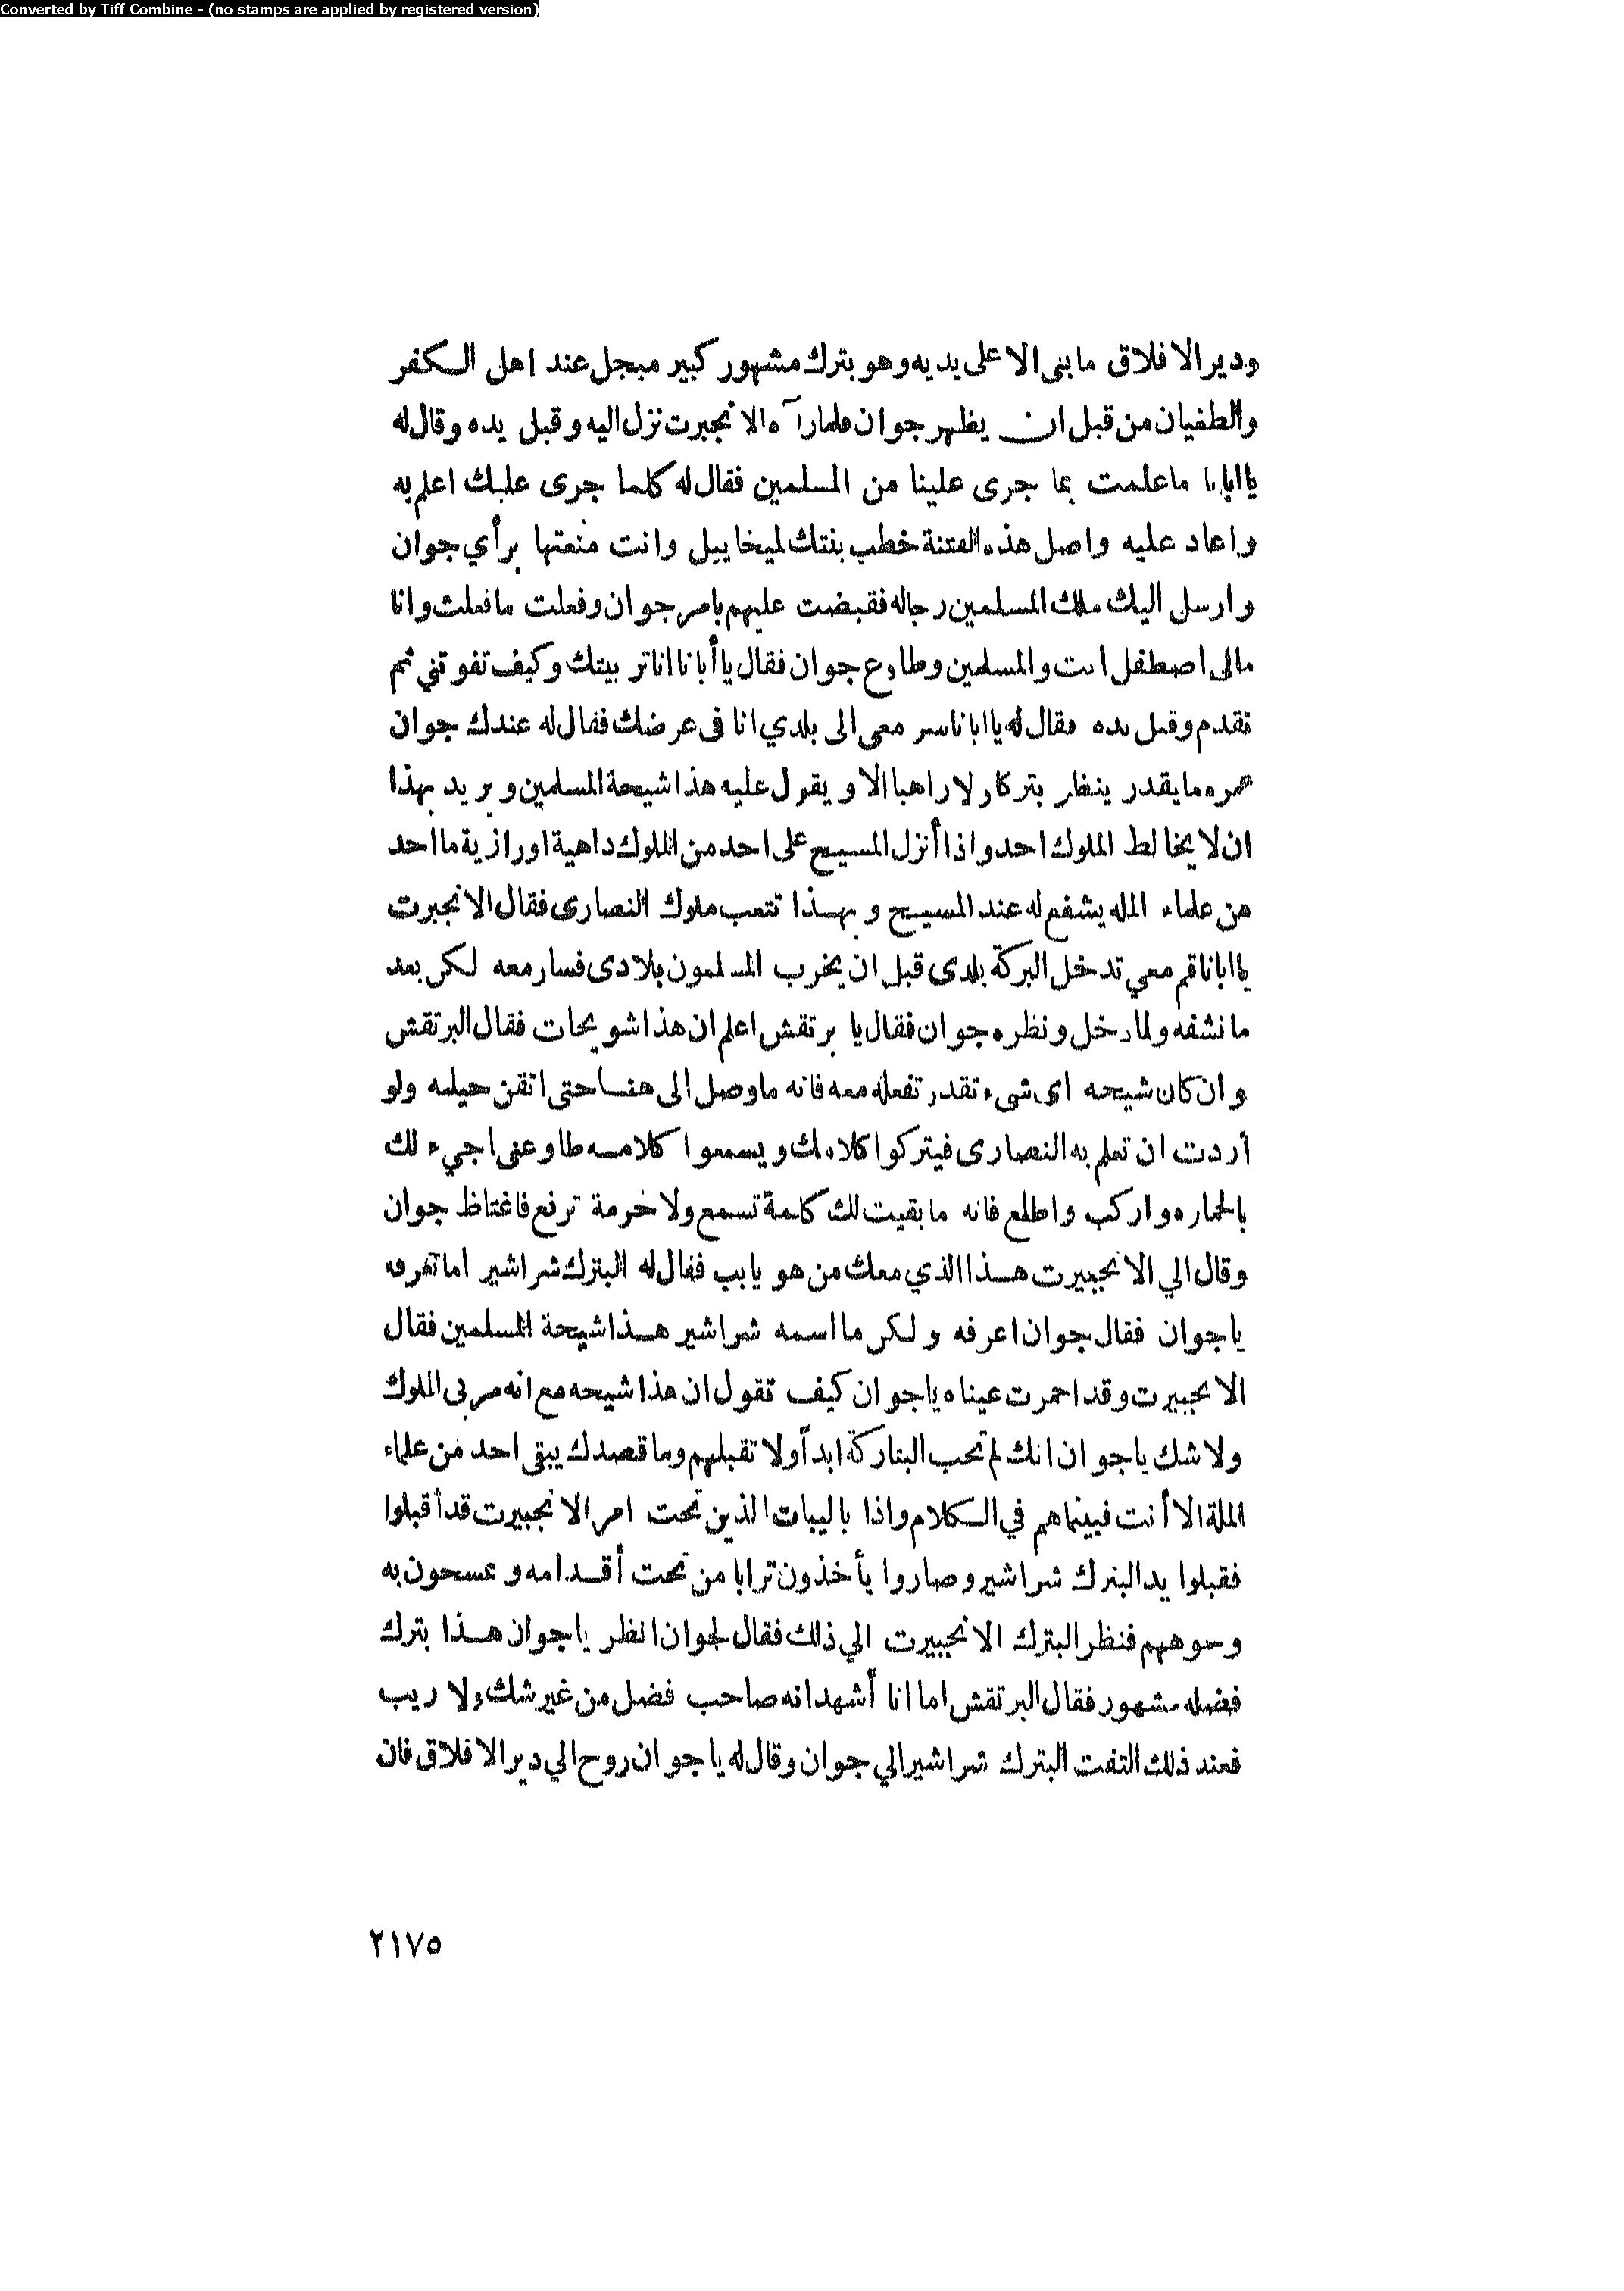 Converted by Tiff Combine - (no stamps are applied by registered version)
ودير الافلاق مابنى الا على يديه وهو بترك مشهور كبير مبجل عند اهل الكفر
والطغيان من قبل ان يظهر جوان فلما رآه الانجبرت نزل اليه وقبل يده وقال له
يا ابانا ما علمت بما جرى علينا من المسلمين فقال له كلما جرى عليك اعلم به
واعاد عليه واصل هذه الفتنة خطب بنتك لميخاييل وانت منعتها برأي جوان
وارسل اليك ملك المسلمين رجاله فقبضت عليهم بامر جوان وفعلت مافعلت وانا
مالى اصطفل انت والمسلمين وطاوع جوان فقال يا أبانا انا تربيتك وكيف تفوتني ثم
تقدم وقبل يده فقال له يا ابانا سر معي الى بلدي انا فى عرضك فقال له عندك جوان
عمره مايقدر ينظر بتركا ولا راهبا الا ويقول عليه هذا شيحة المسلمين ويريد بهذا
ان لا يخالط الملوك احد واذا أنزل المسيح على احد من الملوك داهية او رازية ما احد
من علماء المله يشفع له عند المسيح وبهذا تتعب ملوك النصارى فقال الانجبرت
يا ابانا قم معي تدخل البركة بلدى قبل ان يخرب المسلمون بلادى فسار معه لكن بعد
ما نشفه ولما دخل ونظره جوان فقال يا برتقش اعلم ان هذا شويحات فقال البرتقش
وان كان شيحه اى شىء تقدر تفعله معه فانه ماوصل الى هنا حتى اتقن حيله ولو
أردت ان تعلم به النصارى فيتركوا كلامك ويسمعوا كلامه طاوعنى اجيء لك
بالحماره واركب واطلع فانه مابقيت لك كلمة تسمع ولا حرمة ترفع فاغتاظ جوان
وقال الي الانجبيرت هذا الذي معك من هو يابب فقال له البترك شراشير اما تعرفه
ياجوان فقال جوان اعرفه ولكن ما اسمه شراشير هذا شيحة المسلمين فقال
الانجبيرت وقد احمرت عيناه ياجوان كيف تقول ان هذا شيحه مع انه مربى الملوك
ولا شك ياجوان انك لم تحب البتاركة ابداً ولا تقبلهم وما قصدك يبقى احد من علماء
الملة الا أنت فبينما هم في الكلام واذا باليبات الذين تحت امر الانجبيرت قد أقبلوا
فقبلوا يد البترك شراشير وصاروا يأخذون ترابا من تحت أقدامه ويمسحون به
وجوههم فنظر البترك الانجبيرت الي ذلك فقال لجوان انظر ياجوان هذا بترك
فضله مشهور فقال البرتقش اما انا أشهد انه صاحب فضل من غير شك ولا ريب
فعند ذلك التفت البترك شراشير الي جوان وقال له ياجوان روح الي دير الافلاق فان
٢١٧٥